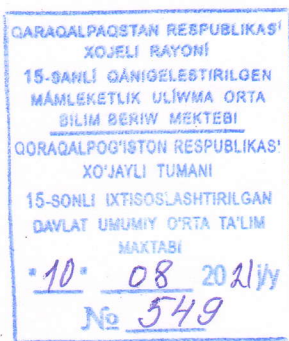 QARAQALPAQSTAN RESPUBLIKASÍ
XOJELI RAYONÍ
15-SANLÍ QÁNIGELESTIRILGEN
MÁMLEKETLIK ULÍWMA ORTA
BILIM BERIW MEKTEBI
QORAQALPOG'ISTON RESPUBLIKASI
XO'JAYLI TUMANI
15-SONLI IXTISOSLASHTIRILGAN
DAVLAT UMUMIY O'RTA TA'LIM
MAXTABI
"10" 08 2021 j/y
№ 549